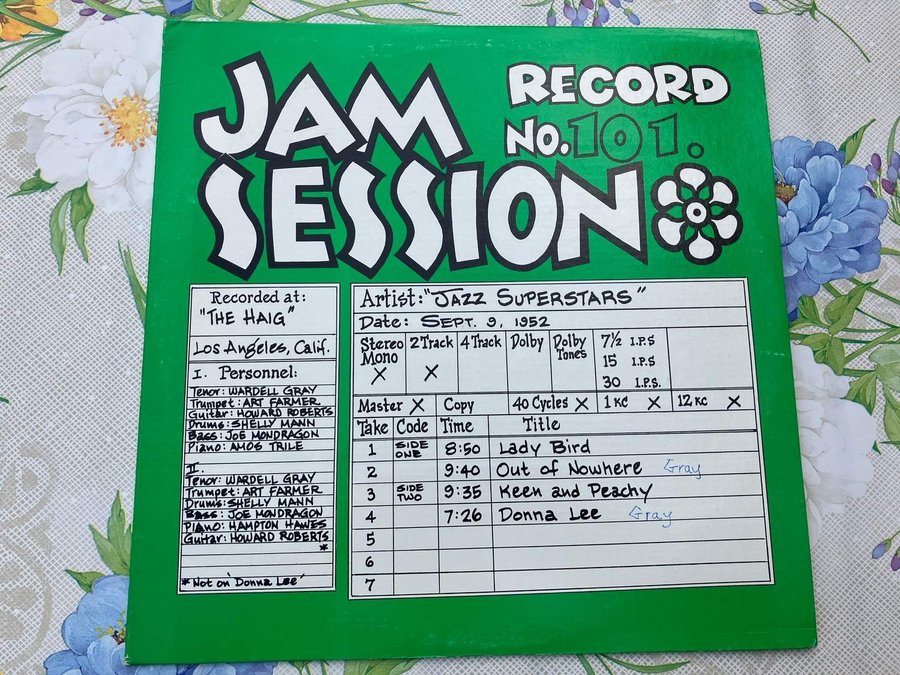 JAM
SESSION
RECORD
No. 101.
Recorded at:
"THE HAIG"
Los Angeles, Calif.
I. Personnel:
Tenor: WARDELL GRAY
Trumpet: ART FARMER
Guitar: HOWARD ROBERTS
Drums: SHELLY MANN
Bass: JOE MONDRAGON
Piano: AMOS TRILE
II.
Tenor: WARDELL GRAY
Trumpet: ART FARMER
Drums: SHELLY MANN
Bass: JOE MONDRAGON
Piano: HAMPTON HAWES
Guitar: HOWARD ROBERTS
*
* Not on 'Donna Lee'
Artist: "JAZZ SUPERSTARS"
Date: SEPT. 9, 1952
Stereo Mono X 2 Track X 4 Track Dolby Dolby Tones 7½ I.P.S
15 I.P.S
30 I.P.S.
Master X Copy 40 Cycles X 1 KC X 12 KC X
Take Code Time Title
1 SIDE ONE 8:50 Lady Bird
2 9:40 Out of Nowhere Gray
3 SIDE TWO 9:35 Keen and Peachy
4 7:26 Donna Lee Gray
5
6
7